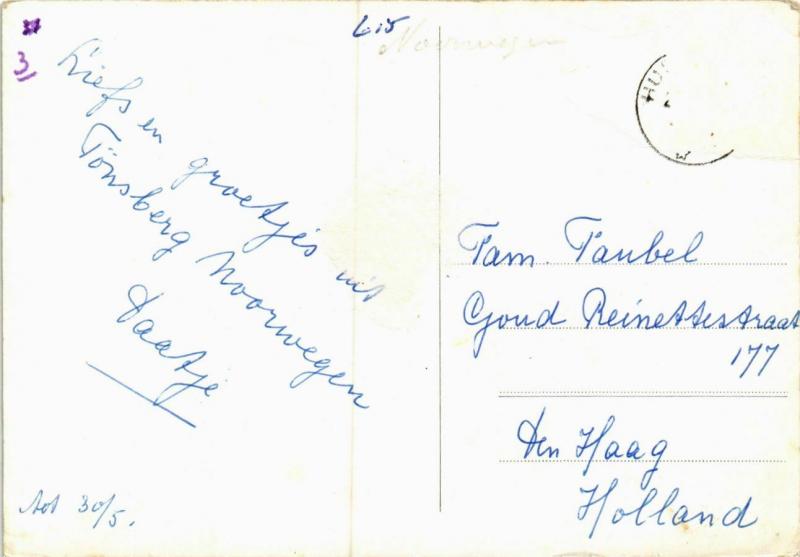 3)
Liefs en groetjes uit
Tönsberg Noorwegen
Daatje
tot 30/5.
Noorwegen
HUS
Fam. Taubel
Goud Reinettestraat
177
Den Haag
Holland